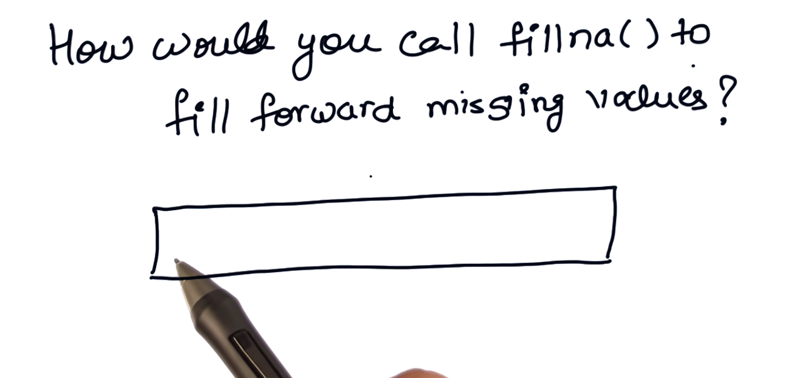 How would you call fillna() to
fill forward missing values?